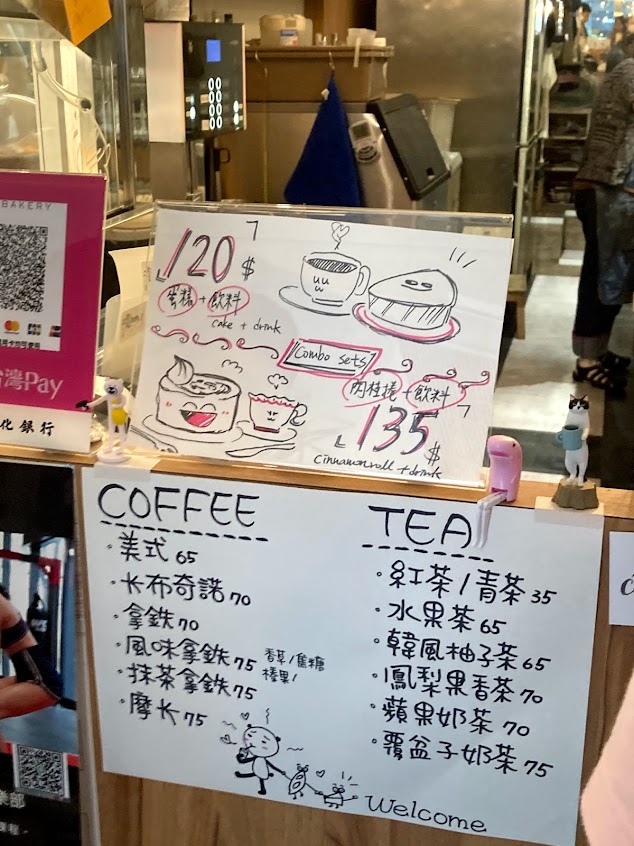 BAKERY
灣Pay
化銀行
120$
蛋糕+飲料
cake + drink
Combo sets
肉桂捲+飲料
135$
cinnamonroll + drink
COFFEE
·美式 65
·卡布奇諾 70
·拿鐵 70
·風味拿鐵 75 香草/焦糖
榛果!
·抹茶拿鐵 75
·摩卡 75
TEA
·紅茶/青茶 35
·水果茶 65
·韓風柚子茶 65
·鳳梨果香茶 70
·蘋果奶茶 70
·覆盆子奶茶 75
Welcome